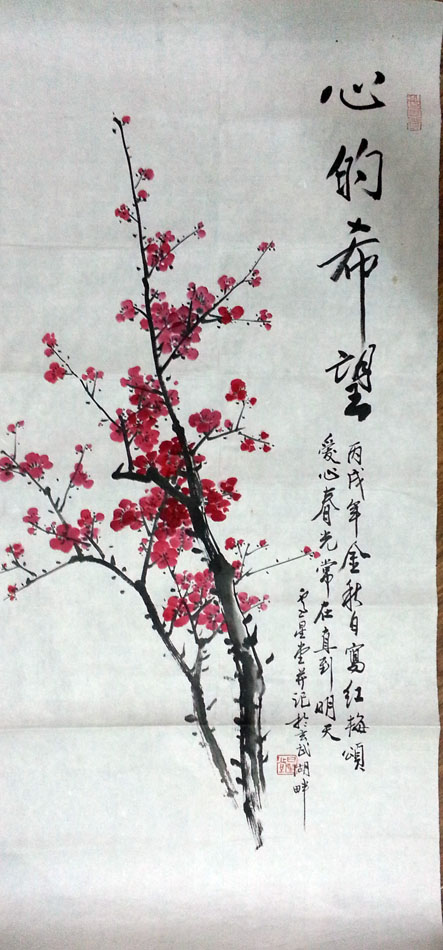 心的希望
丙戌年金秋自写红梅颂
爱心春光常在直到明天
星堂并记於玄武湖畔